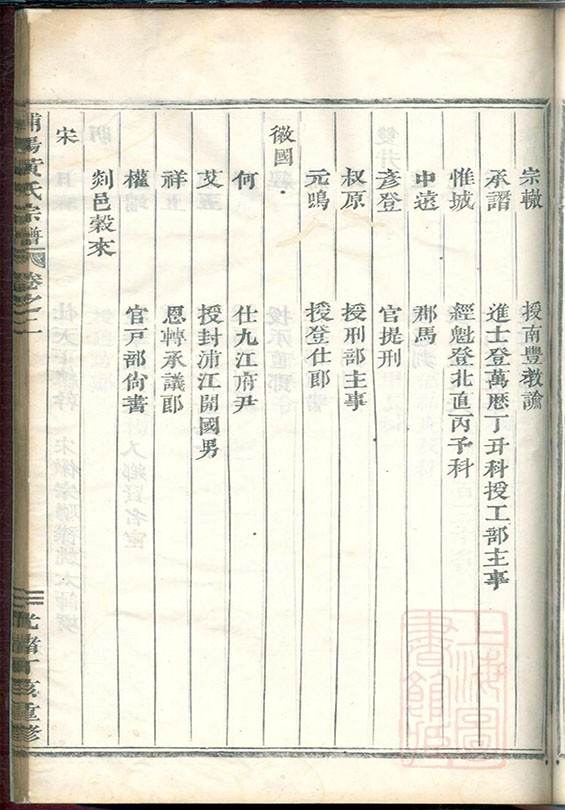 宗轍 授南豐教諭
承譖 進士登萬曆丁丑科授工部主事
惟城 經魁登北直丙子科
申遠 郡馬
彥登 官提刑
叔原 授刑部主事
元鳴 授登仕郎
徽國
何 仕九江府尹
艾 授封浦江開國男
祥 恩轉承議郎
權 官戸部尙書
剡邑穀來
宋
浦陽黃氏宗譜 卷之二 光緒丁亥重修
上海圖書館藏